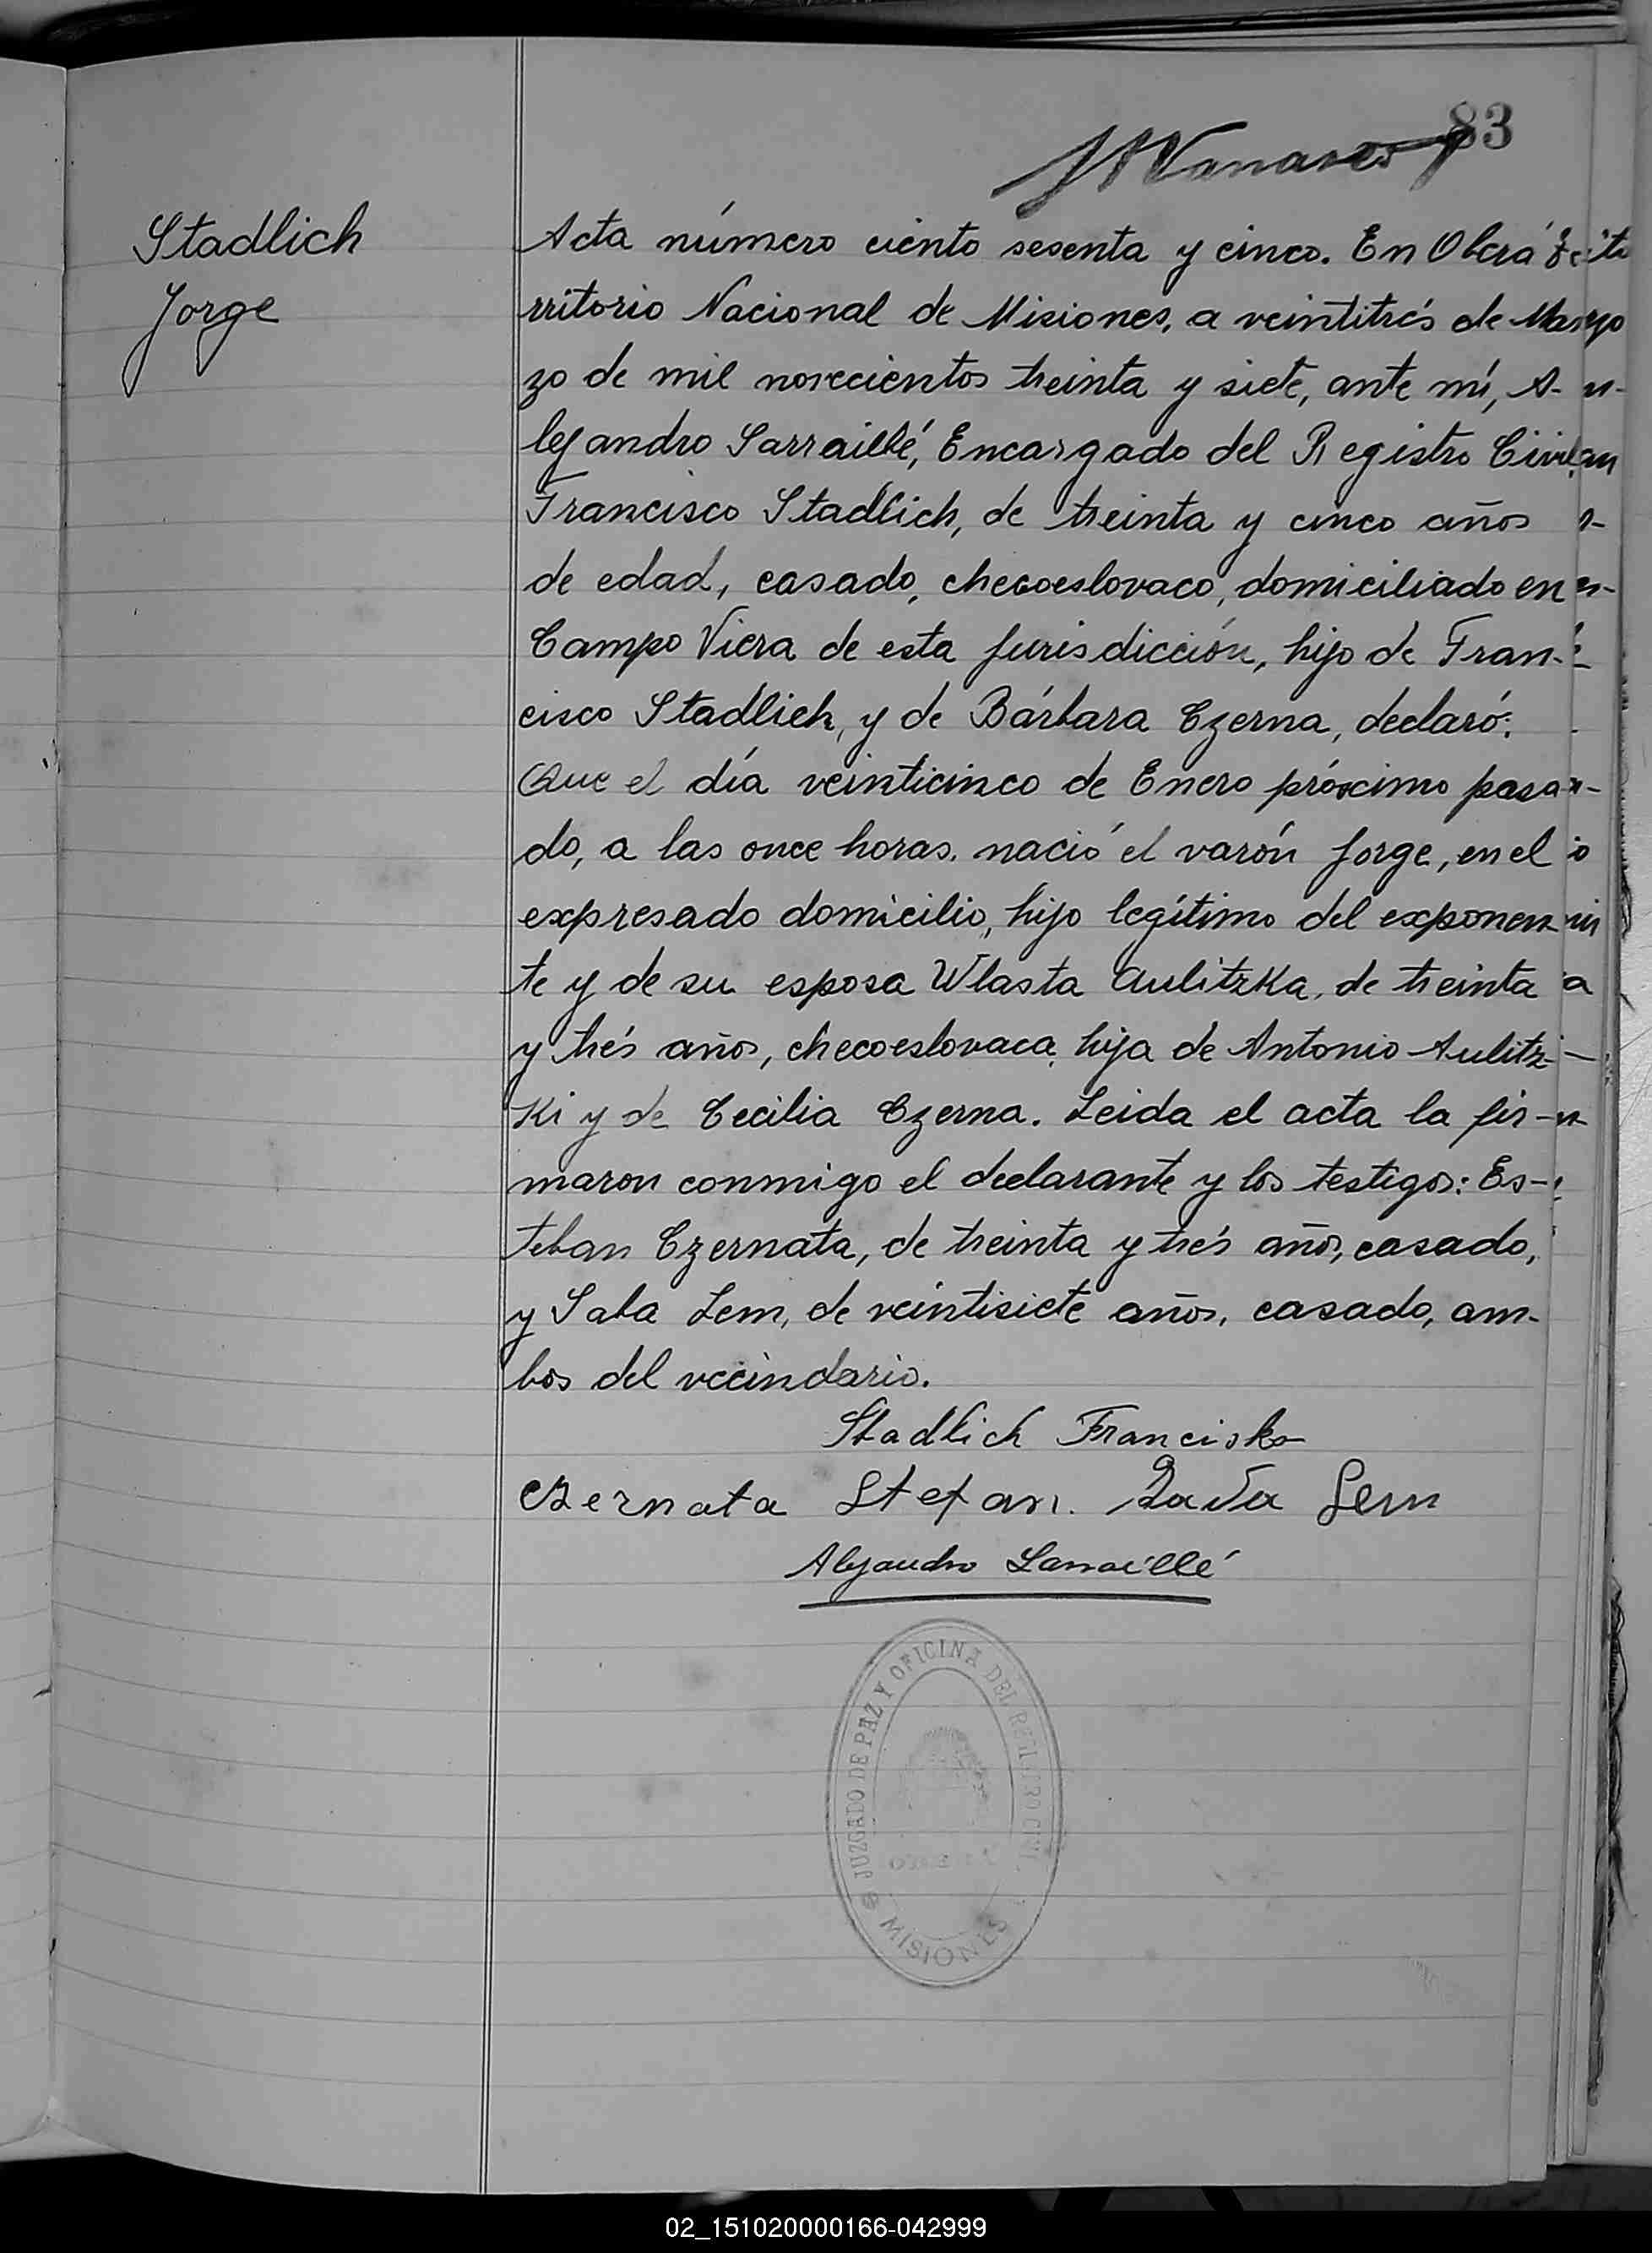 83
Stadlich
Jorge
Acta número ciento sesenta y cinco. En Oberá Te
rritorio Nacional de Misiones, a veintitrés de Mar
zo de mil novecientos treinta y siete, ante mí, A-
lejandro Sarraillé, Encargado del Registro Civil,
Francisco Stadlich, de treinta y cinco años
de edad, casado, checoeslovaco, domiciliado en
Campo Viera de esta jurisdicción, hijo de Fran-
cisco Stadlich, y de Bárbara Czerna, declaró:
Que el día veinticinco de Enero próximo pasa-
do, a las once horas, nació el varón Jorge, en el
expresado domicilio, hijo legítimo del exponen
te y de su esposa Wlasta Aulitzka, de treinta
y trés años, checoeslovaca, hija de Antonio Aulitz-
Ki y de Cecilia Czerna. Leida el acta la fir-
maron conmigo el declarante y los testigos: Es-
teban Czernata, de treinta y trés años, casado,
y Saba Lem, de veintisiete años, casado, am-
bos del vecindario.
Stadlich Francisko
Czernata Stefan. Lem
Alejandro Sarraillé
JUZGADO DE PAZ Y OFICINA DEL REGISTRO CIVIL
MISIONES
02_151020000166-042999